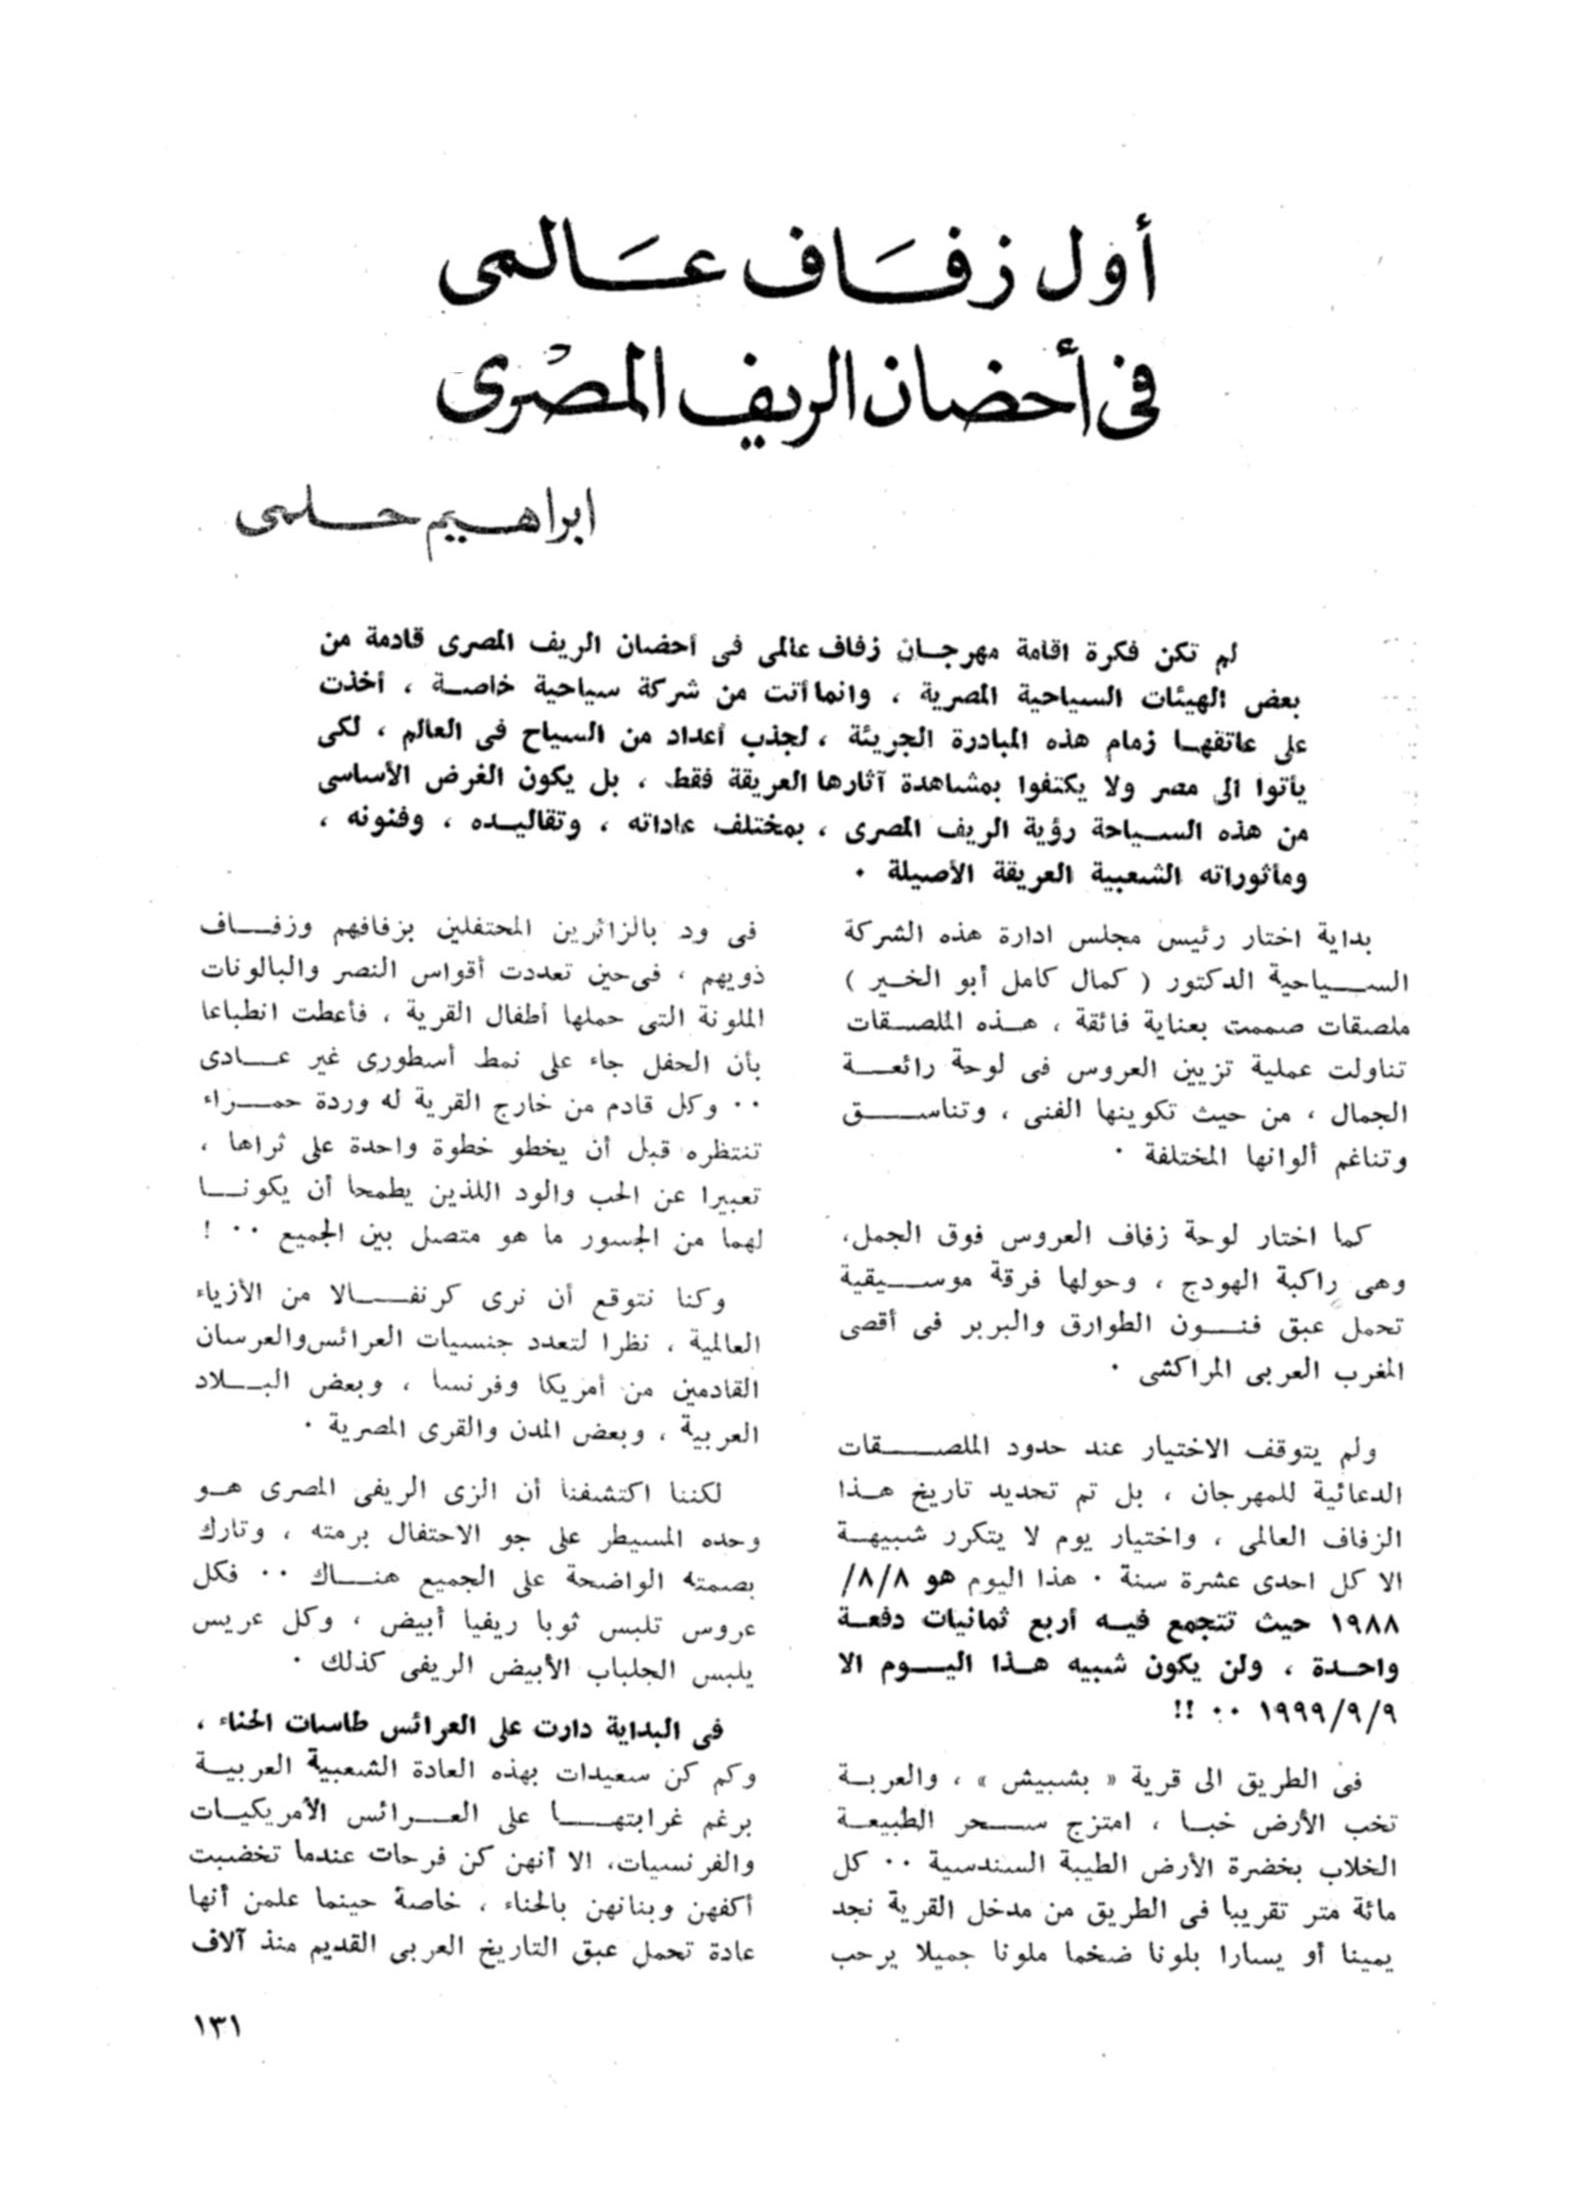 أول زفاف عالمى
فى أحضان الريف المصرى
ابراهيم حلمى
لم تكن فكرة اقامة مهرجان زفاف عالمى فى أحضان الريف المصرى قادمة من
بعض الهيئات السياحية المصرية ، وانما أتت من شركة سياحية خاصة ، أخذت
على عاتقها زمام هذه المبادرة الجريئة ، لجذب أعداد من السياح فى العالم ، لكى
يأتوا الى مصر ولا يكتفوا بمشاهدة آثارها العريقة فقط ، بل يكون الغرض الأساسى
من هذه السياحة رؤية الريف المصرى ، بمختلف عاداته ، وتقاليده ، وفنونه ،
ومأثوراته الشعبية العريقة الأصيلة ٠
بداية اختار رئيس مجلس ادارة هذه الشركة
السياحية الدكتور ( كمال كامل أبو الخير )
ملصقات صممت بعناية فائقة ، هذه الملصقات
تناولت عملية تزيين العروس فى لوحة رائعة
الجمال ، من حيث تكوينها الفنى ، وتناسق
وتناغم ألوانها المختلفة ٠
كما اختار لوحة زفاف العروس فوق الجمل،
وهى راكبة الهودج ، وحولها فرقة موسيقية
تحمل عبق فنون الطوارق والبربر فى أقصى
المغرب العربى المراكشى ٠
ولم يتوقف الاختيار عند حدود الملصقات
الدعائية للمهرجان ، بل تم تحديد تاريخ هذا
الزفاف العالمى ، واختيار يوم لا يتكرر شبيهة
الا كل احدى عشرة سنة ٠ هذا اليوم هو ٨/٨/
١٩٨٨ حيث تتجمع فيه أربع ثمانيات دفعة
واحدة ، ولن يكون شبيه هذا اليوم الا
١٩٩٩/٩/٩ ٠٠ !!
فى الطريق الى قرية « بشبيش » ، والعربة
تخب الأرض خبا ، امتزج سحر الطبيعة
الخلاب بخضرة الأرض الطيبة السندسية ٠٠ كل
مائة متر تقريبا فى الطريق من مدخل القرية نجد
يمينا أو يسارا بلونا ضخما ملونا جميلا يرحب
فى ود بالزائرين المحتفلين بزفافهم وزفاف
ذويهم ، فى حين تعددت أقواس النصر والبالونات
الملونة التى حملها أطفال القرية ، فأعطت انطباعا
بأن الحفل جاء على نمط أسطورى غير عادى
٠٠ وكل قادم من خارج القرية له وردة حمراء
تنتظره قبل أن يخطو خطوة واحدة على ثراها ،
تعبيرا عن الحب والود اللذين يطمحا أن يكونا
لهما من الجسور ما هو متصل بين الجميع ٠٠ !
وكنا نتوقع أن نرى كرنفالا من الأزياء
العالمية ، نظرا لتعدد جنسيات العرائس والعرسان
القادمين من أمريكا وفرنسا ، وبعض البلاد
العربية ، وبعض المدن والقرى المصرية ٠
لكننا اكتشفنا أن الزى الريفى المصرى هو
وحده المسيطر على جو الاحتفال برمته ، وتارك
بصمته الواضحة على الجميع هناك ٠٠ فكل
عروس تلبس ثوبا ريفيا أبيض ، وكل عريس
يلبس الجلباب الأبيض الريفى كذلك ٠
فى البداية دارت على العرائس طاسات الحناء ،
وكم كن سعيدات بهذه العادة الشعبية العربية
برغم غرابتها على العرائس الأمريكيات
والفرنسيات، الا أنهن كن فرحات عندما تخضبت
أكفهن وبنانهن بالحناء ، خاصة حينما علمن أنها
عادة تحمل عبق التاريخ العربى القديم منذ آلاف
١٣١